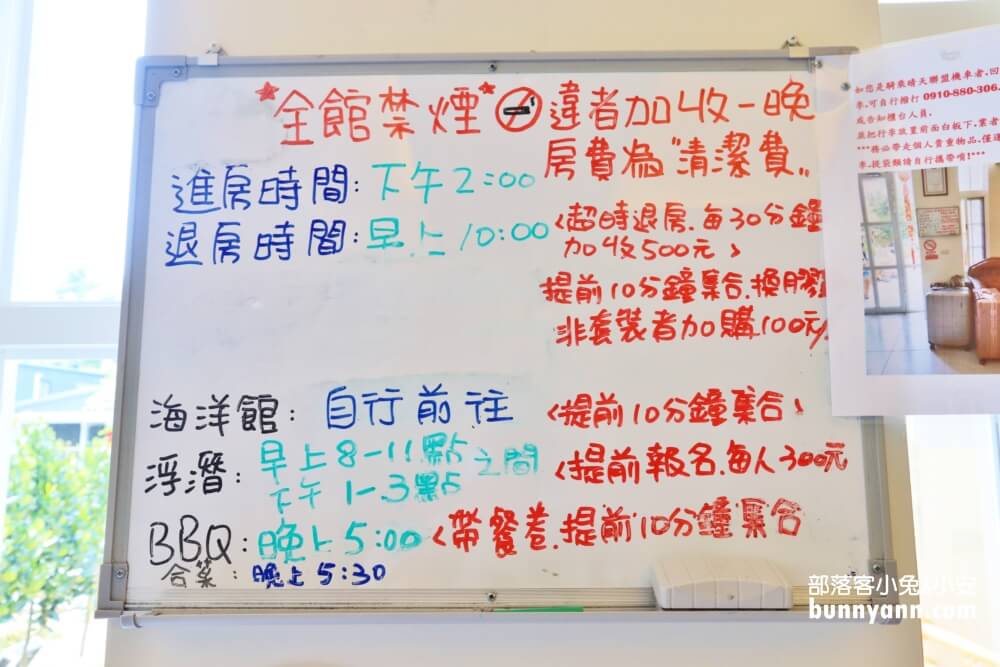 全館禁煙 違者加收一晚
房費為"清潔費"
進房時間：下午2:00
退房時間：早上10:00 <超時退房.每30分鐘
加收500元>
提前10分鐘集合.換膠
非套裝者加購100元/
海洋館：自行前往 <提前10分鐘集合>
浮潛：早上8-11點之間
下午1-3點
<提前報名.每人300元
BBQ：晚上5:00 <帶餐卷.提前10分鐘集合
合菜：晚上5:30
如您是騎乘晴天聯盟機車者,回
車,可自行撥打 0910-880-306.
或告知櫃台人員.
並把行李放置前面白板下,業者
***務必帶走個人貴重物品,僅送
車,提袋類請自行攜帶唷!***
部落客小兔&小安
bunnyann.com